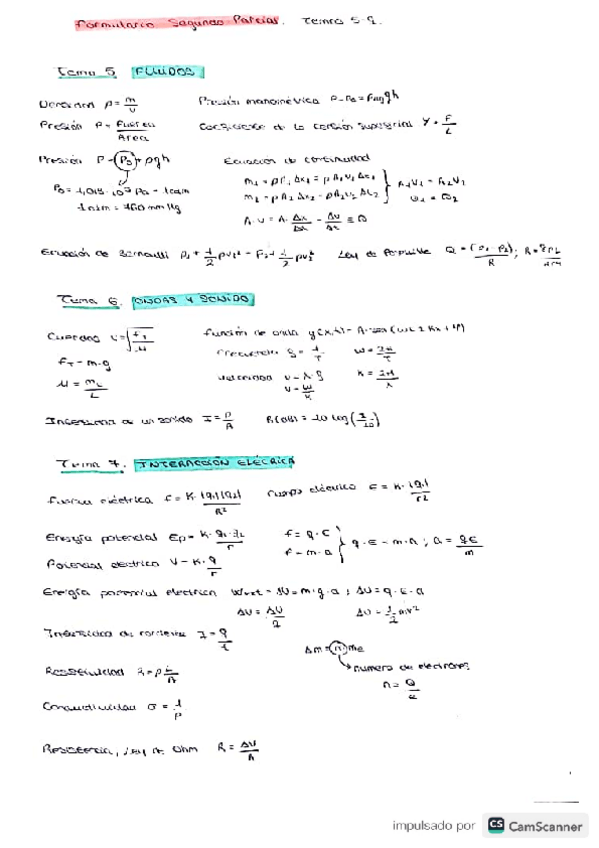 Formulario Segundo Parcial. Temas 5-9.
Tema 5 FLUIDOS
Densidad ρ = m/V Presión manométrica P-P₀ = ρmgh
Presión P = Fuerza/Área Coeficiente de la tensión superficial γ = F/L
Presión P = P₀ + ρgh Ecuación de continuidad
m₁ = ρA₁Δx₁ = ρA₁v₁Δt₁
m₂ = ρA₂Δx₂ = ρA₂v₂Δt₂
A₁V₁ = A₂V₂
P₀ = 1,013·10⁵ Pa = 1atm
1atm = 760 mmHg
A·v = A·Δx/Δt = ΔV/Δt ≡ Q
Ecuación de Bernoulli P₁ + 1/2 ρv₁² = P₂ + 1/2 ρv₂² Ley de Poiseuille Q = (P₁-P₂)/R ; R = 8ηL/πr⁴
Tema 6. ONDAS Y SONIDO
Cuerdas v = √(F_T/μ) función de onda y(x,t) = A·sen(ωt ± kx + φ)
F_T = m·g frecuencia f = 1/T ω = 2π/T
μ = m_L/L velocidad v = λ·f k = 2π/λ
v = ω/k
Intensidad de un sonido I = P/A β(dB) = 10 log(I/I₀)
Tema 7. INTERACCIÓN ELÉCRICA
Fuerza eléctrica F = K·|q₁||q₂|/R² campo eléctrico E = K·|q|/r²
Energía potencial Ep = K·q₁·q₂/r F = q·E
F = m·a
q·E = m·a ; a = qE/m
Potencial electrico V = K·q/r
Energía potencial electrica Wext = ΔU = m·g·a ; ΔU = q·E·a
ΔV = ΔU/q ΔU = 1/2 mv²
Intensidad de corriente I = q/t
Δm = (n)me
numero de electrones
n = Q/e
Resistividad R = ρL/A
Conductividad σ = 1/ρ
Resistencia, Ley de Ohm R = ΔV/A
impulsado por CS CamScanner